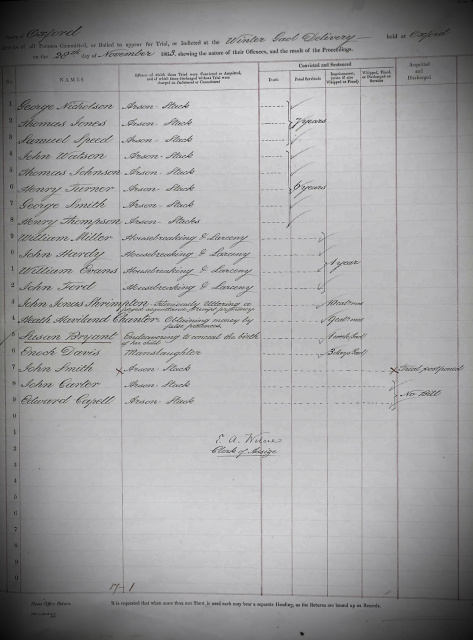 of Oxford
of all Persons Committed, or Bailed to appear for Trial, or Indicted at the Winter Gaol Delivery held at Oxford
on the 29th day of November 1863, shewing the nature of their Offences, and the result of the Proceedings.
Convicted and Sentenced
No. NAMES Offences of which those Tried were Convicted or Acquitted, and of which those Discharged without Trial were charged on Indictment or Commitment Death Penal Servitude Imprisonment, (state if also Whipped or Fined) Whipped, Fined, or Discharged on Sureties Acquitted and Discharged
1 George Nicholson Arson - Stack
2 Thomas Jones Arson - Stack 7 years
3 Samuel Speed Arson - Stack
4 John Watson Arson - Stack
5 Thomas Johnson Arson - Stack
6 Henry Turner Arson - Stack 6 years
7 George Smith Arson - Stack
8 Henry Thompson Arson - Stacks
9 William Miller Housebreaking & Larceny
0 John Hurdy Housebreaking & Larceny 1 year
1 William Evans Housebreaking & Larceny
2 John Ford Housebreaking & Larceny
3 John Jonas Shrimpton Feloniously Uttering a forged
4 Heath Haviland Chanter Obtaining money by false pretences
5 Susan Bryant Endeavouring to conceal the birth of her child
6 Enoch Davis Manslaughter 3 days
7 John Smith Arson - Stack Trial postponed
8 John Carter Arson - Stack
9 Edward Capell Arson - Stack No Bill
E. A.
Clerk of Assize
Home Office Return. It is requested that when more than one Sheet is used each may bear a separate Heading, as the Returns are bound up as Records.